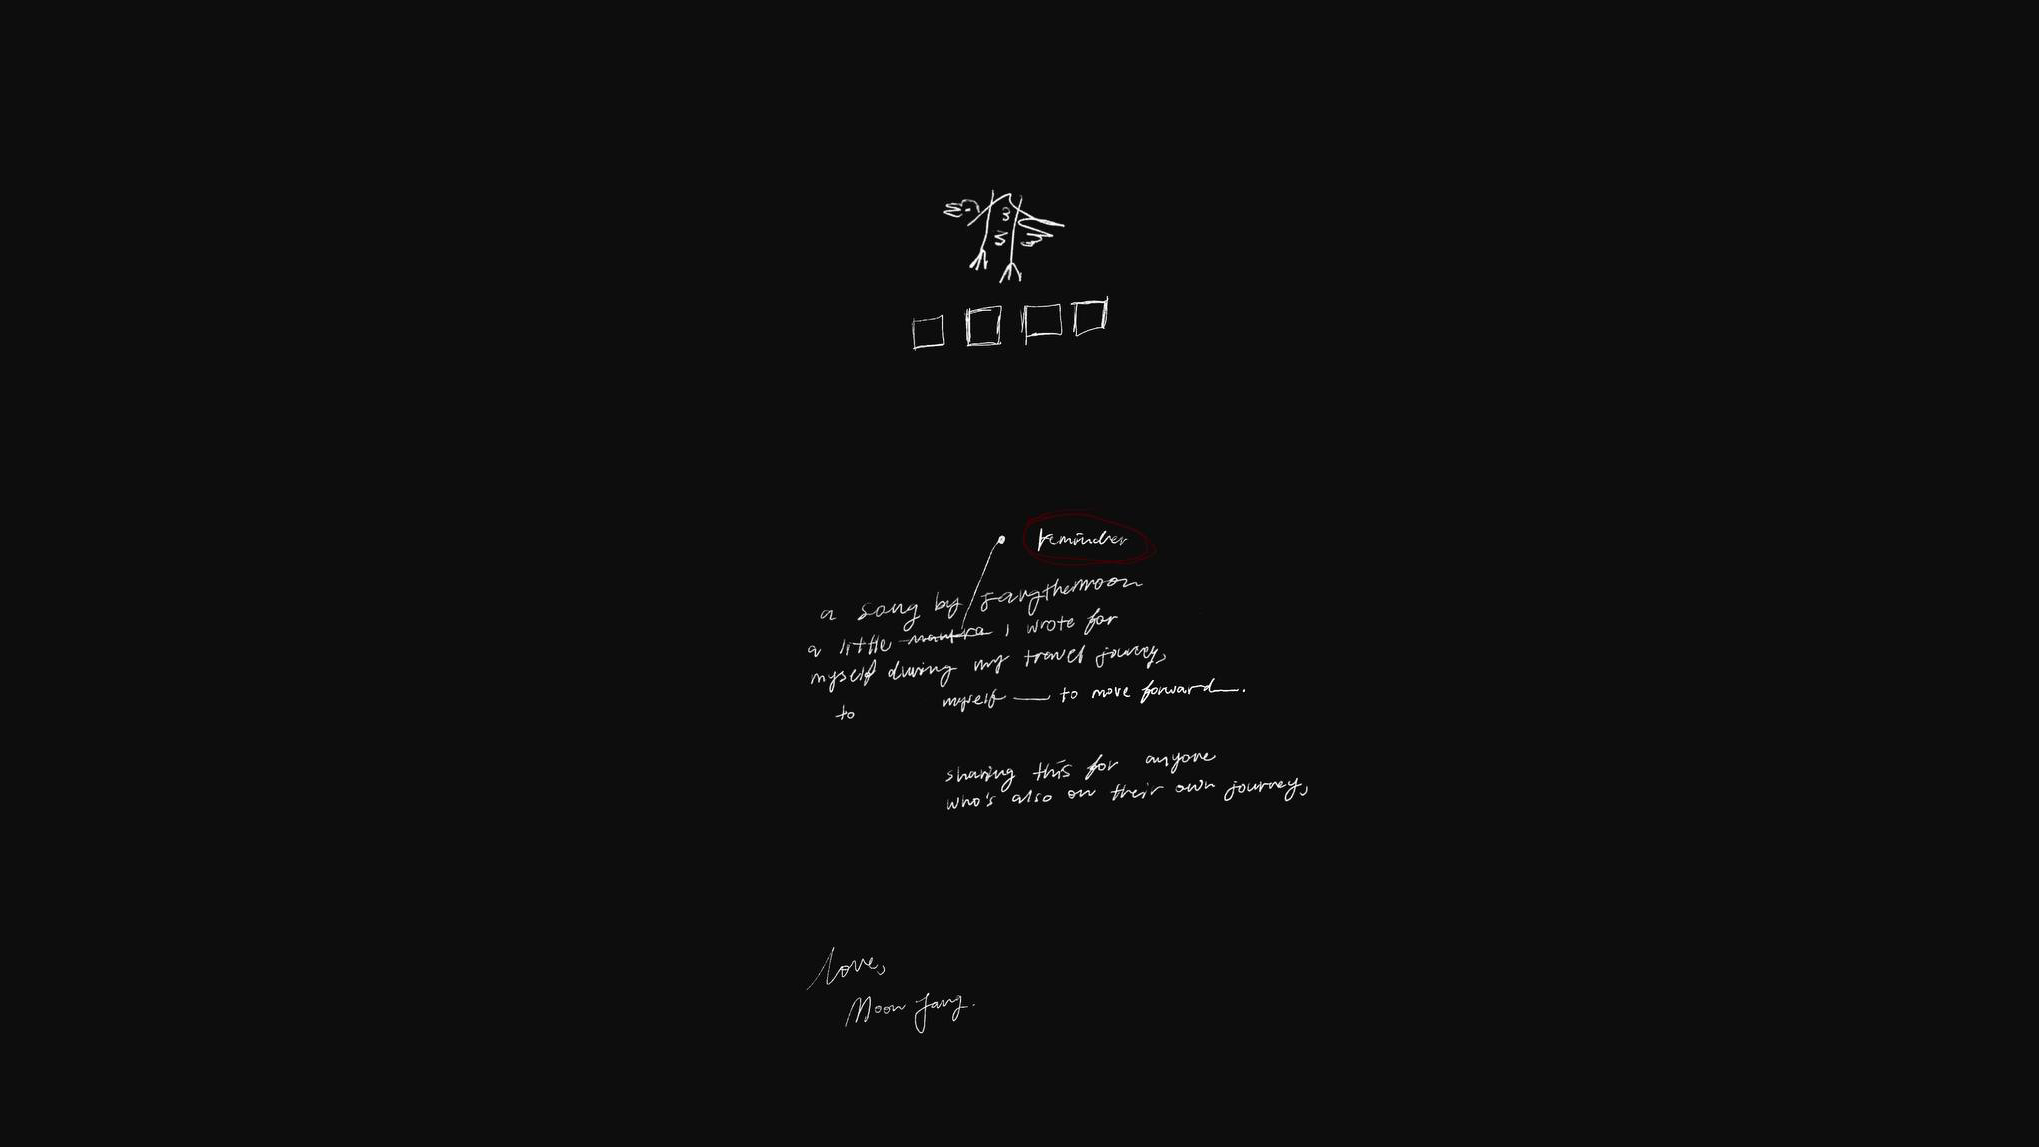 reminder
a song by jangthemoon
a little mantra I wrote for
myself during my travel jourey,
to myself — to move forward.
sharing this for anyone
who's also on their own journey,
love,
Moon Jang.